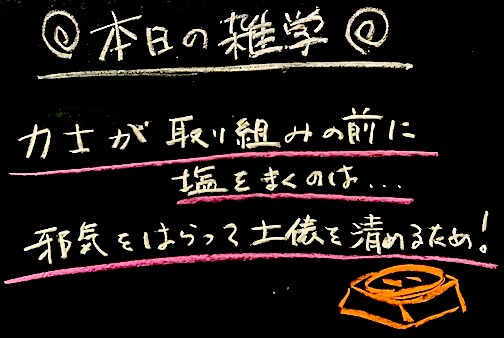 ◎ 本日の雑学 ◎
力士が取り組みの前に
塩をまくのは...
邪気をはらって土俵を清めるため!